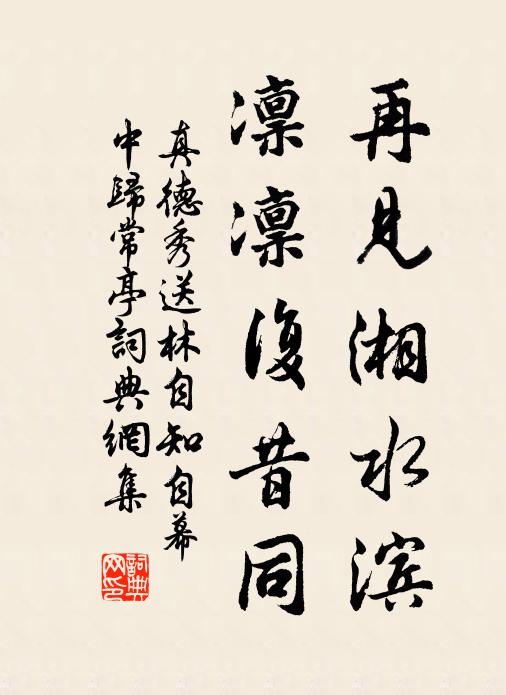 再见湘水滨
凛凛復昔同
真德秀送林自知自幕
中歸常亭詞典網集
詞典网印